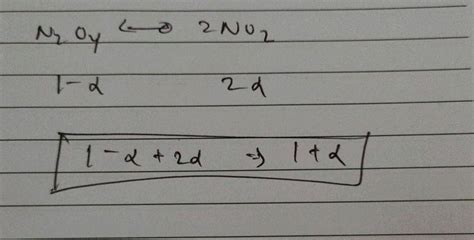 N₂O₄ ⟷ 2NO₂
1-α 2α
1-α+2α ⇒ 1+α